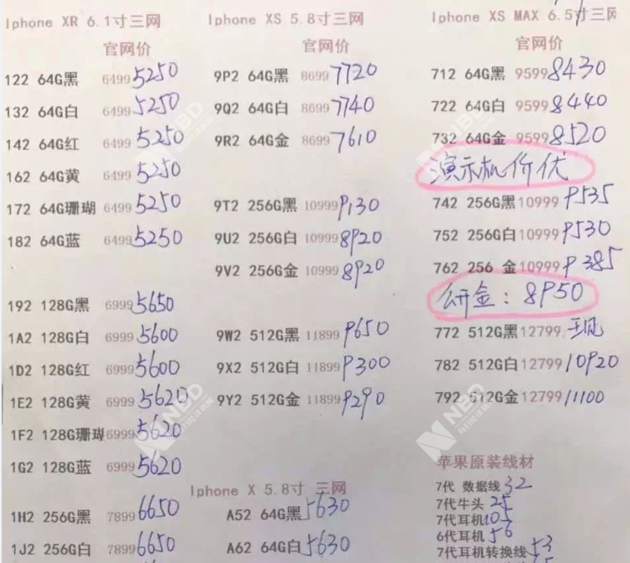 Iphone XR 6.1寸三网
官网价
122 64G黑 6499 5250
132 64G白 6499 5250
142 64G红 6499 5250
162 64G黄 6499 5250
172 64G珊瑚 6499 5250
182 64G蓝 6499 5250
192 128G黑 6999 5650
1A2 128G白 6999 5600
1D2 128G红 6999 5600
1E2 128G黄 6999 5620
1F2 128G珊瑚 6999 5620
1G2 128G蓝 6999 5620
1H2 256G黑 7899 6650
1J2 256G白 7899 6650
Iphone XS 5.8寸三网
官网价
9P2 64G黑 8699 7720
9Q2 64G白 8699 7740
9R2 64G金 8699 7610
9T2 256G黑 10999 9130
9U2 256G白 10999 8920
9V2 256G金 10999 8920
9W2 512G黑 11899 9650
9X2 512G白 11899 9300
9Y2 512G金 11899 9290
Iphone X 5.8寸 三网
A52 64G黑 5630
A62 64G白 5630
Iphone XS MAX 6.5寸三网
官网价
712 64G黑 9599 8430
722 64G白 9599 8440
732 64G金 9599 8520
演示机价优
742 256G黑 10999 9535
752 256G白 10999 9530
762 256 金 10999 9385
金: 8950
772 512G黑 12799
782 512G白 12799 10920
792 512G金 12799 11100
苹果原装线材
7代 数据线 32
7代牛头 25
7代耳机 105
6代耳机 56
7代耳机转换线 53
NBD
每日经济新闻